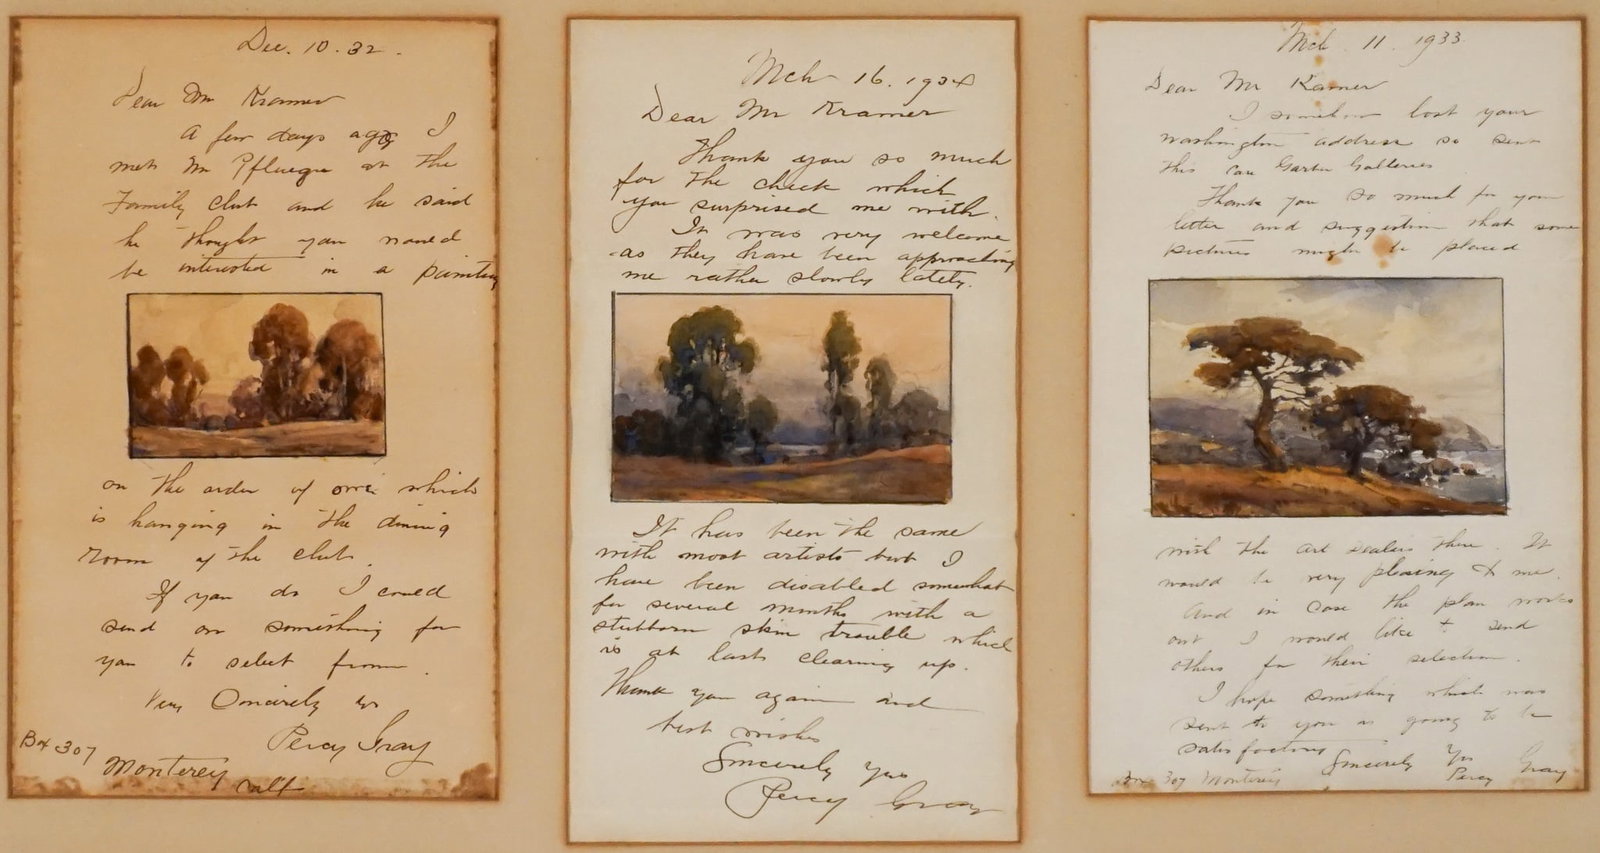 Dec. 10. 32.
Dear Mr Kramer
A few days ago I
met Mr Pflueger at the
Family Club and he said
he thought you would
be interested in a painting
on the order of one which
is hanging in the dining
room of the club.
If you do I could
send on something for
you to select from.
Very Sincerely Yrs
Percy Gray
Box 307
Monterey
Calf
Mch 16. 1934
Dear Mr Kramer
Thank you so much
for the check which
you surprised me with.
It was very welcome
as they have been approaching
me rather slowly lately.
It has been the same
with most artists but I
have been disabled somewhat
for several months with a
stubborn skin trouble which
is at last clearing up.
Thank you again and
best wishes
Sincerely Yrs
Percy Gray
Mch 11. 1933.
Dear Mr Kramer
I somehow lost your
Washington address so sent
this care Galleries
Thank you so much for your
letter and suggestion that some
pictures might be placed
with the art dealers there. It
would be very pleasing to me.
And in case the plan works
out I would like to send
others for their selection.
I hope something which was
sent to you is going to be
satisfactory
Sincerely Yrs
Percy Gray
Box 307 Monterey